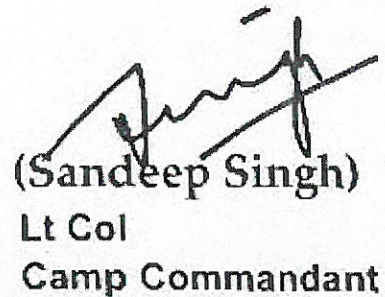 (Sandeep Singh)
Lt Col
Camp Commandant